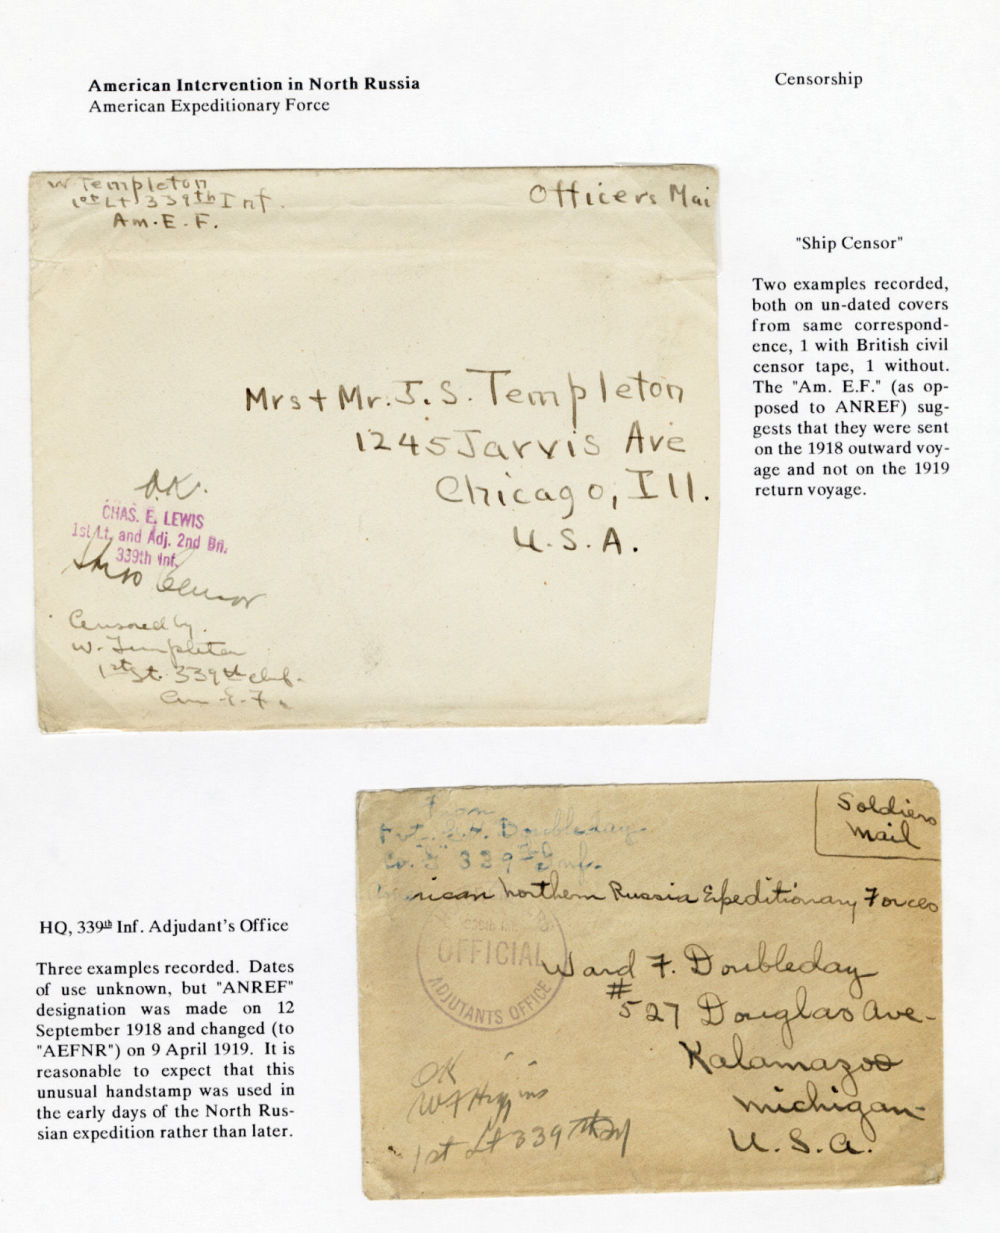 American Intervention in North Russia
American Expeditionary Force
Censorship
W Templeton
1st Lt 339th Inf.
Am. E. F.
Officers Mai
"Ship Censor"
Two examples recorded,
both on un-dated covers
from same correspond-
ence, 1 with British civil
censor tape, 1 without.
The "Am. E.F." (as op-
posed to ANREF) sug-
gests that they were sent
on the 1918 outward voy-
age and not on the 1919
return voyage.
Mrs + Mr. J. S. Templeton
1245 Jarvis Ave
Chicago, Ill.
U. S. A.
O.K.
CHAS. E. LEWIS
1st Lt. and Adj. 2nd Bn.
339th Inf.
Ship Censor
Censored by.
W. Templeton
1st Lt. 339th Inf.
Am. E. F.
HQ, 339th Inf. Adjudant's Office
Three examples recorded. Dates
of use unknown, but "ANREF"
designation was made on 12
September 1918 and changed (to
"AEFNR") on 9 April 1919. It is
reasonable to expect that this
unusual handstamp was used in
the early days of the North Rus-
sian expedition rather than later.
From
Pvt. Doubleday
Co. "G" 339th Inf.
American Northern Russia Expeditionary Forces
Soldiers
Mail
OFFICIAL
ADJUTANTS OFFICE
Ward F. Doubleday
#527 Douglas Ave.
Kalamazoo
Michigan
U. S. A.
OK
W F Higgins
1st Lt 339th Inf